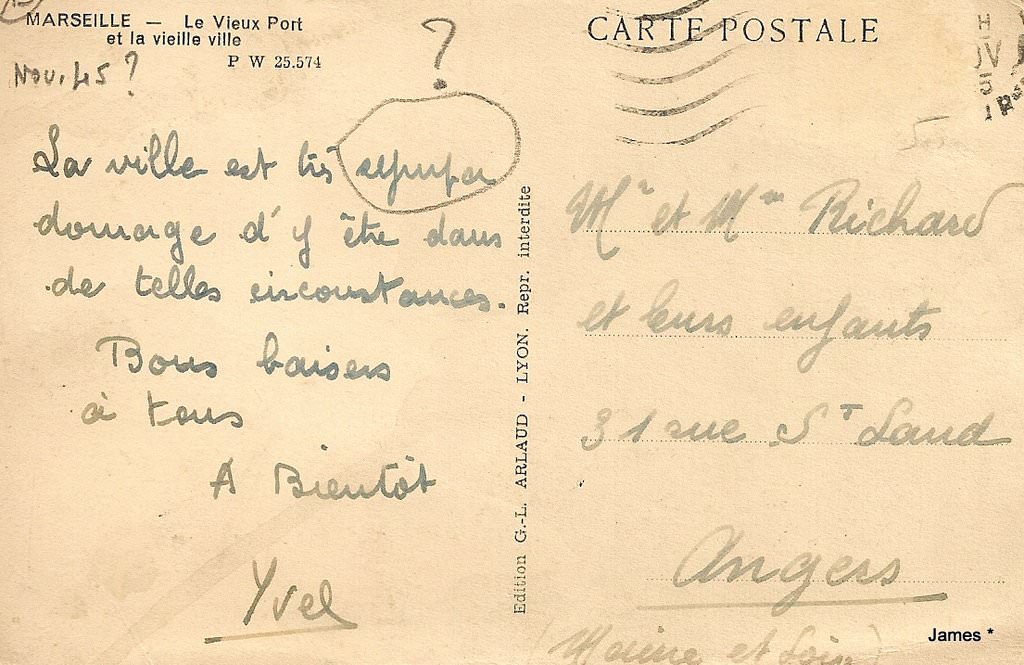 MARSEILLE — Le Vieux Port
et la vieille ville
P W 25.574
Nov. 45 ?
?
La ville est très sympa
domage d'y être dans
de telles circonstances.
Bons baisers
à tous
A Bientôt
Yvel
Edition G.-L. ARLAUD - LYON. Repr. interdite
CARTE POSTALE
Mr et Mme Richard
et leurs enfants
31 rue St Laud
Angers
(Maine et Loire)
James *